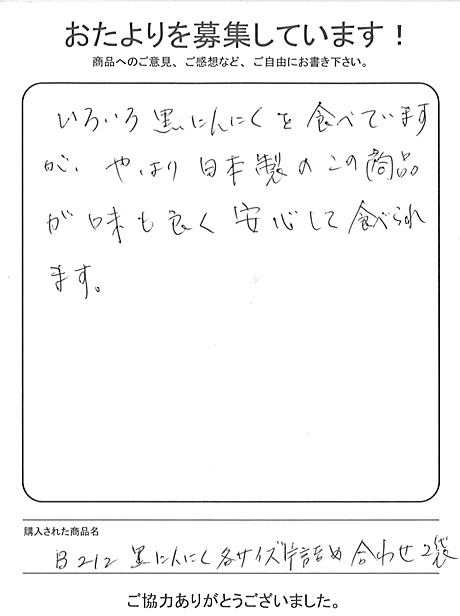 おたよりを募集しています！
商品へのご意見、ご感想など、ご自由にお書き下さい。
いろいろ黒にんにくを食べています
が、やはり日本製のこの商品
が味も良く安心して食べられ
ます。
購入された商品名
B212 黒にんにく各サイズ片詰め合わせ2袋
ご協力ありがとうございました。